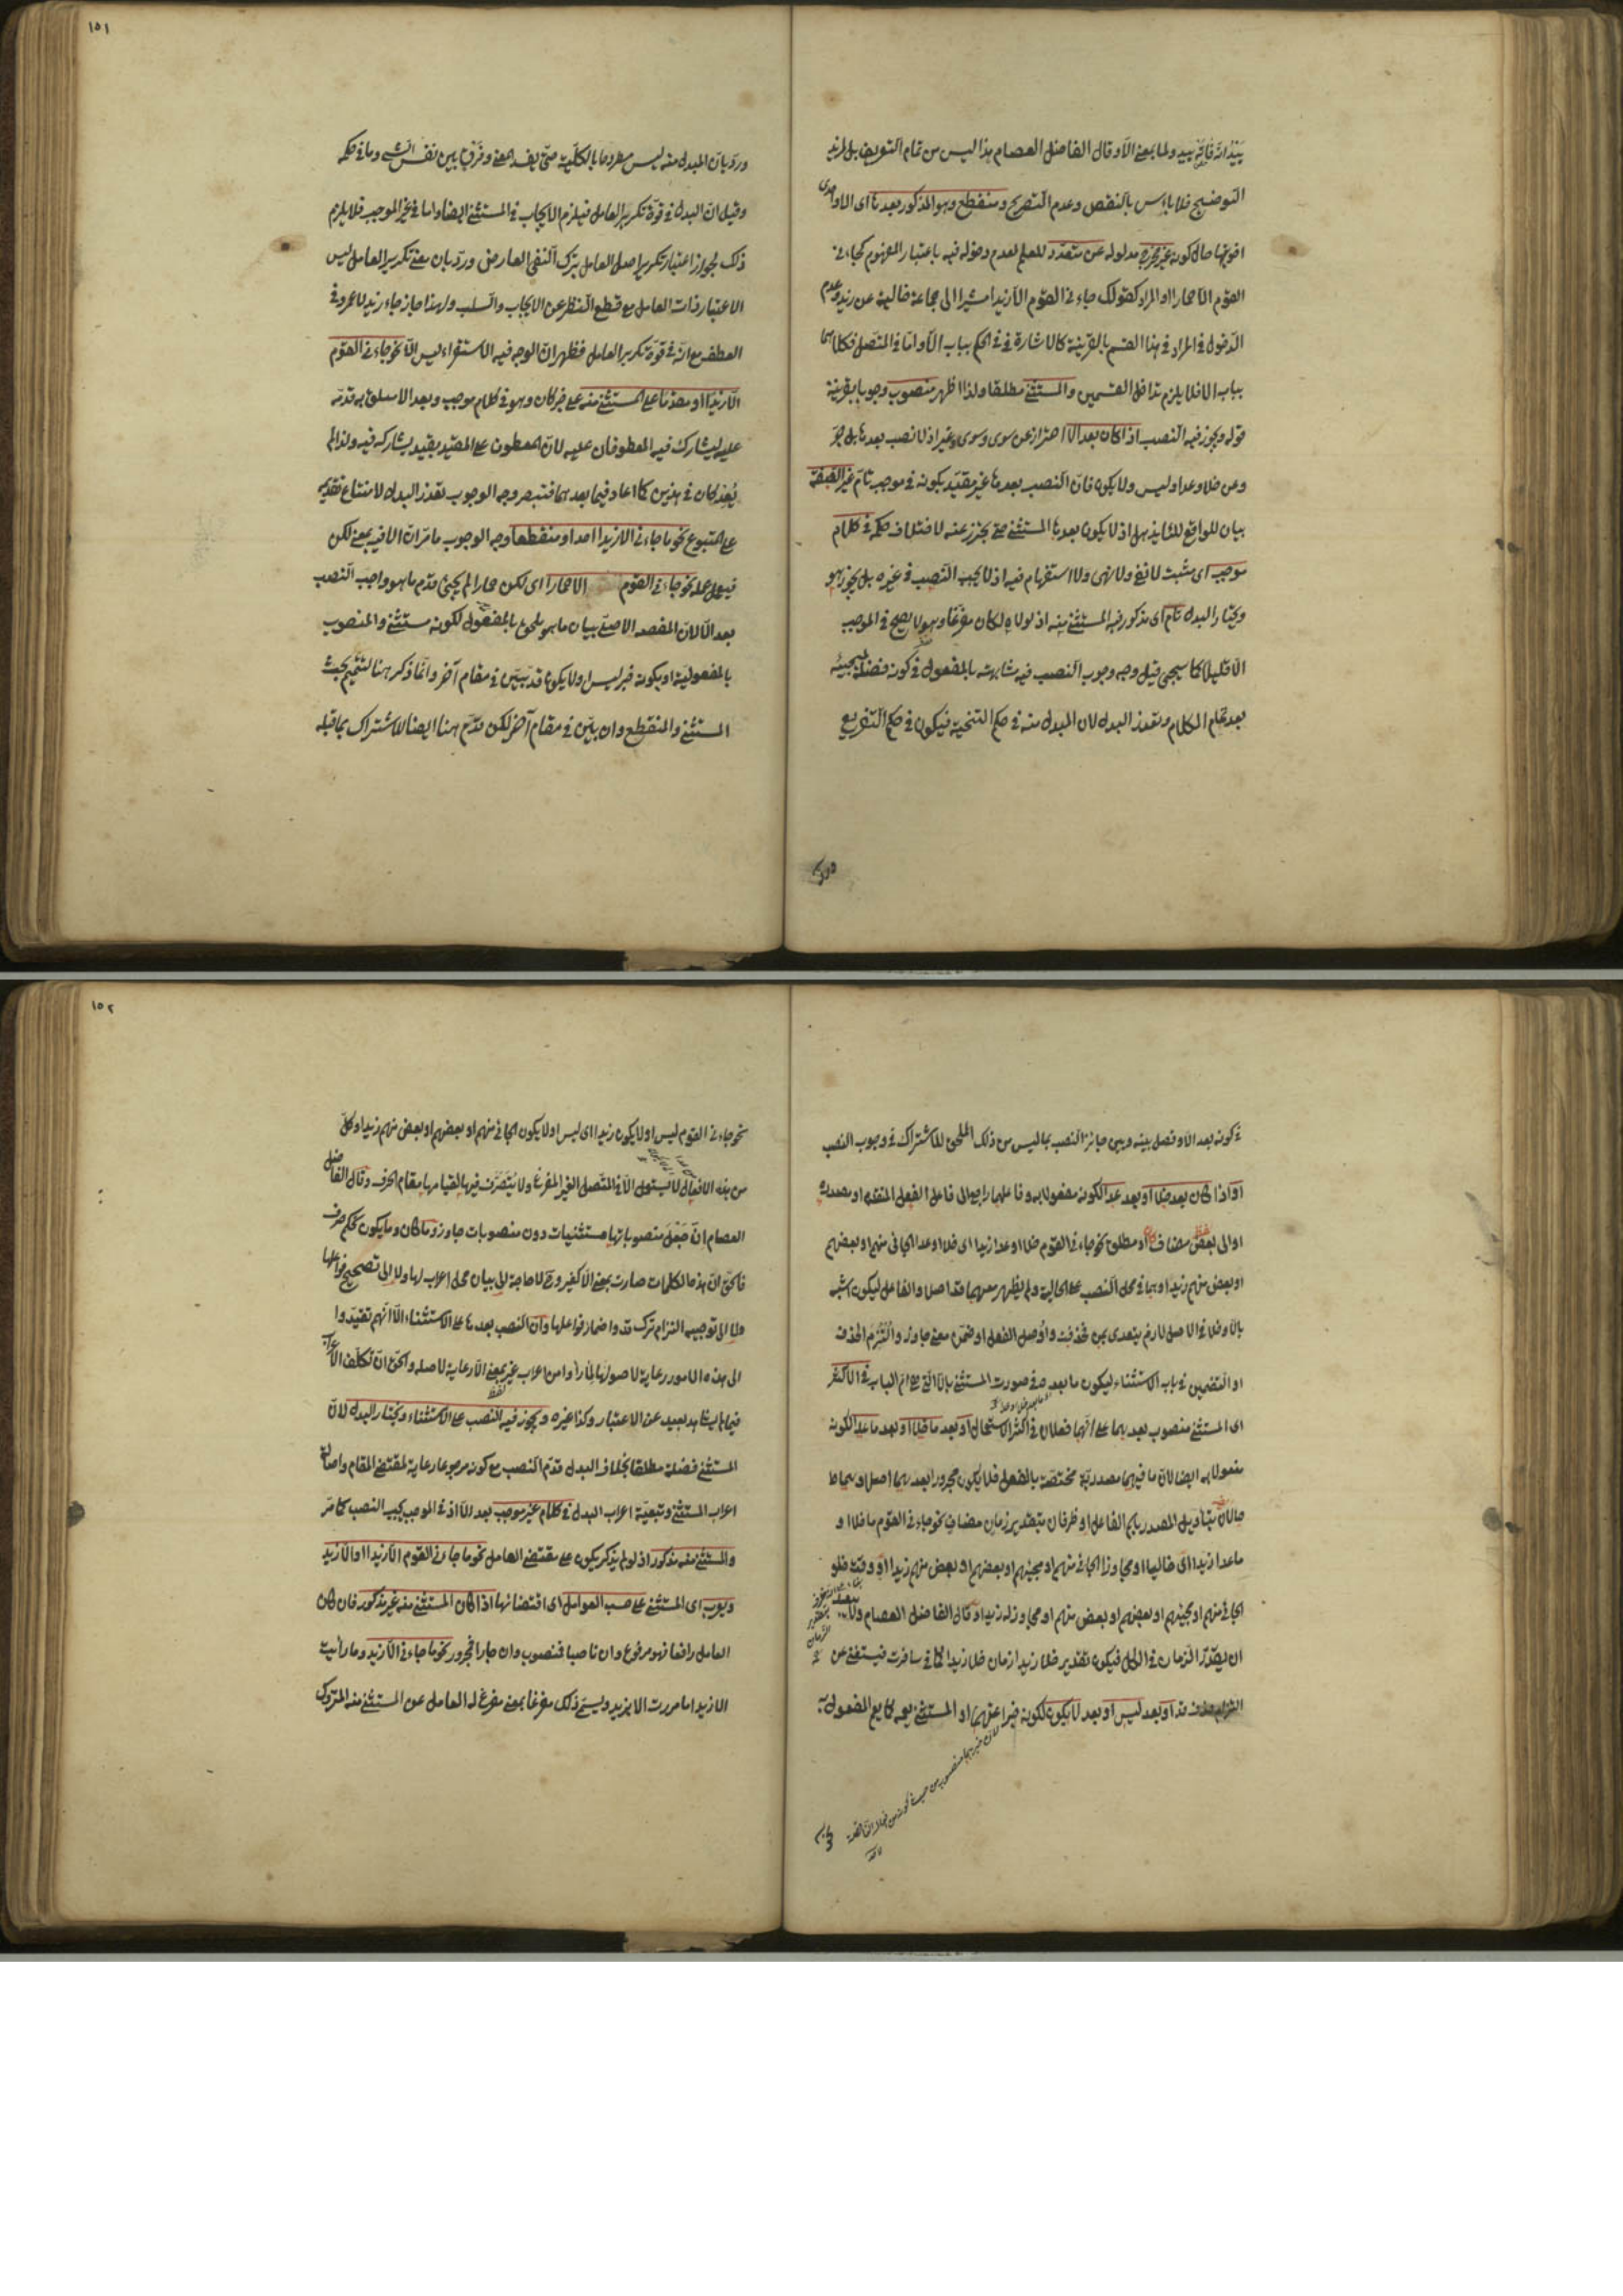 ١٥١
وقال الفاضل العصام هذا ليس من تمام التعريف بل لمزيد
التوضيح فلا بأس بالنقص وعدم التصريح ومنقطع وهو المذكور بعدها اى الا او احدى
اخواتها حال كونه غير مخرج مدلوله عن متعدد للعلم لعدم دخوله فيه باعتبار المفهوم كجاءنى
القوم الا حمارا او المراد كقولك جاءنى القوم الا زيدا مشيرا الى جماعة خالية عن زيد وعدم
الدخول فى المراد فى هذا القسم بالقرينة كالاشارة فى الحكم بباب الا واما فى المتصل فكلاهما
بباب الا فلا يلزم تداخل القسمين والمستثنى مطلقا ولذا اظهر منصوب وجوبا بقرينة
قوله ويجوز فيه النصب اذا كان بعد الا احتراز عن سوى وسوى وغير اذ لا نصب بعدها بل جر
وعن خلا وعدا وليس ولا يكون فان النصب بعدها غير مقيد بكونه فى موجب تام غير الصفة
بيان للواقع لئلا يذهل اذ لا يكون بعدها المستثنى حتى يحترز عنه لاختلاف حكمه فى كلام
موجب اى مثبت لا نفى ولا نهى ولا استفهام فيه اذ لا يجب النصب فى غيره بل يجوز هو
ويختار البدل تام اى مذكور فيه المستثنى منه اذ لولاه لكان مفرغا وهو لا يصح فى الموجب
الا قليلا كما سيجئ قيل وجه وجوب النصب فيه مشابهته بالمفعول فى كونه فضلة لمجيئه
بعد تمام الكلام وتعذر البدل لان المبدل منه فى حكم التنحية فيكون فى حكم التفريع
ورد بان المبدل منه ليس مطروحا بالكلية حتى يفسد المعنى وفرق بين نفس الشئ وما فى حكمه
وقيل ان البدل فى قوة تكرير العامل فيلزم الايجاب فى المستثنى ايضا واما فى غير الموجب فلا يلزم
ذلك لجواز اعتبار تكرير اصل العامل بترك النفى العارض ورد بان معنى تكرير العامل ليس
الا اعتبار ذات العامل مع قطع النظر عن الايجاب والسلب ولهذا جاز جاء زيد لا عمرو فى
العطف مع انه فى قوة تكرير العامل فظهر ان الوجه فيه الاستقراء ليس الا نحو جاءنى القوم
الا زيدا او مقدما على المستثنى منه على خبر كان وهو فى كلام موجب وبعد الا سلق به قدمه
عليه ليشارك فيه المعطوفان عليه لان المعطوف على المقيد بقيد يشاركه فيه ولذا لم
يعد كان فى هذين كما اعاد فيما بعدهما فتبصر وجه الوجوب تعذر البدل لامتناع تقديمه
على المتبوع نحو ما جاءنى الا زيدا احد او منقطعا وجه الوجوب ما مر ان الا فيه بمعنى لكن
فيعمل عمله نحو جاءنى القوم الا حمارا اى لكن حمارا لم يجئ قدم ما هو واجب النصب
بعد الا لان المقصد الاصلى بيان ما هو ملحق بالمفعول لكونه مستثنى والمنصوب
بالمفعولية او بكونه خبر ليس او لا يكون قد تبين فى مقام آخر وانما ذكر هنا لتتميم بحث
المستثنى والمنقطع وان بين فى مقام آخر لكن قدم هنا ايضا للاشتراك بما قبله
ورد
١٥٢
فى كونه بعد الا وفصل بينه وبين جائز النصب بما ليس من ذلك الملحق للاشتراك فى وجوب النصب
او اذا كان بعد خلا او بعد عدا لكونه مفعولا به وفاعلهما راجع الى فاعل الفعل المتقدم او مصدره
او الى بعض مضاف او مطلق نحو جاءنى القوم خلا او عدا زيدا اى خلا او عدا الجائى منهم او بعضهم
او بعض منهم زيدا وهما فى محل النصب على الحالية ولم يظهر معهما قد اصلا والفاعل ليكون اشبه
بالا وخلا فى الاصل لازم يتعدى بمن فحذفت واوصل الفعل او ضمن معنى جاوز والتزم الحذف
او التضمين فى باب الاستثناء ليكون ما بعده فى صورة المستثنى بالا التى هى ام الباب فى الاكثر
اى المستثنى منصوب بعدهما على انهما فعلان فى اكثر الاستعمال او بعد ما خلا او بعد ما عدا لكونه
مفعولا به ايضا لان ما فيهما مصدرية مختصة بالفعل فلا يكون مجرورا بعدهما اصلا وهما
حالان بتأويل المصدر باسم الفاعل او ظرفان بتقدير زمان مضاف نحو جاءنى القوم ما خلا او
ما عدا زيدا اى خاليا او مجاوزا الجائى منهم او مجيئهم او بعضهم او بعض منهم زيدا او وقت خلو
الجائى منهم او مجيئهم او بعضهم او بعض منهم او مجاوزته زيدا وقال الفاضل العصام
ان يقدر الزمان فى الكل فيكون تقدير خلا زيدا زمان خلا زيدا كما فى سافرت فيستغنى عن
قد او بعد ليس او بعد لا يكون لكونه خبرا عنهما او المستثنى
نحو جاءنى القوم ليس او لا يكون زيدا اى ليس او لا يكون الجائى منهم او بعضهم او بعض منهم زيدا وكل
من هذه الافعال لا يستعمل الا فى المتصل الغير المفرغ ولا يتصرف فيها لقيامها مقام الحرف وقال الفاضل
العصام ان جعل منصوباتها مستثنيات دون منصوبات جاوز وما كان وما يكون تحكم صرف
فالحق ان هذه الكلمات صارت بمعنى الا كغير وح لا حاجة الى بيان محل اعراب لها ولا الى تصحيح فواعلها
ولا الى توجيه التزام ترك قد واضمار فواعلها وان النصب بعدها على الاستثناء الا انهم تقيدوا
الى هذه الامور رعاية لاصولها لما رأوا من اعراب غير بمعنى الا رعاية لاصله والحق ان تكلف الاعراب
فيما لم يشاهد بعيد عن الاعتبار وكذا غيره ويجوز فيه النصب على الاستثناء ويختار البدل لان
المستثنى فضلة مطلقا بخلاف البدل قدم النصب مع كونه مرجوحا رعاية لمقتضى المقام واصالة
اعراب المستثنى وتبعية اعراب البدل فى كلام غير موجب بعد الا اذ فى الموجب يجب النصب كما مر
والمستثنى منه مذكور اذ لو لم يذكر يكون على مقتضى العامل نحو ما جاءنى القوم الا زيدا او الا زيد
ويعرب اى المستثنى على حسب العوامل اى اقتضائها اذا كان المستثنى منه غير مذكور فان كان
العامل رافعا فهو مرفوع وان ناصبا فمنصوب وان جارا فمجرور نحو ما جاءنى الا زيد وما رأيت
الا زيدا وما مررت الا بزيد ويسمى ذلك مفرغا بمعنى مفرغ له العامل عن المستثنى منه المتروك